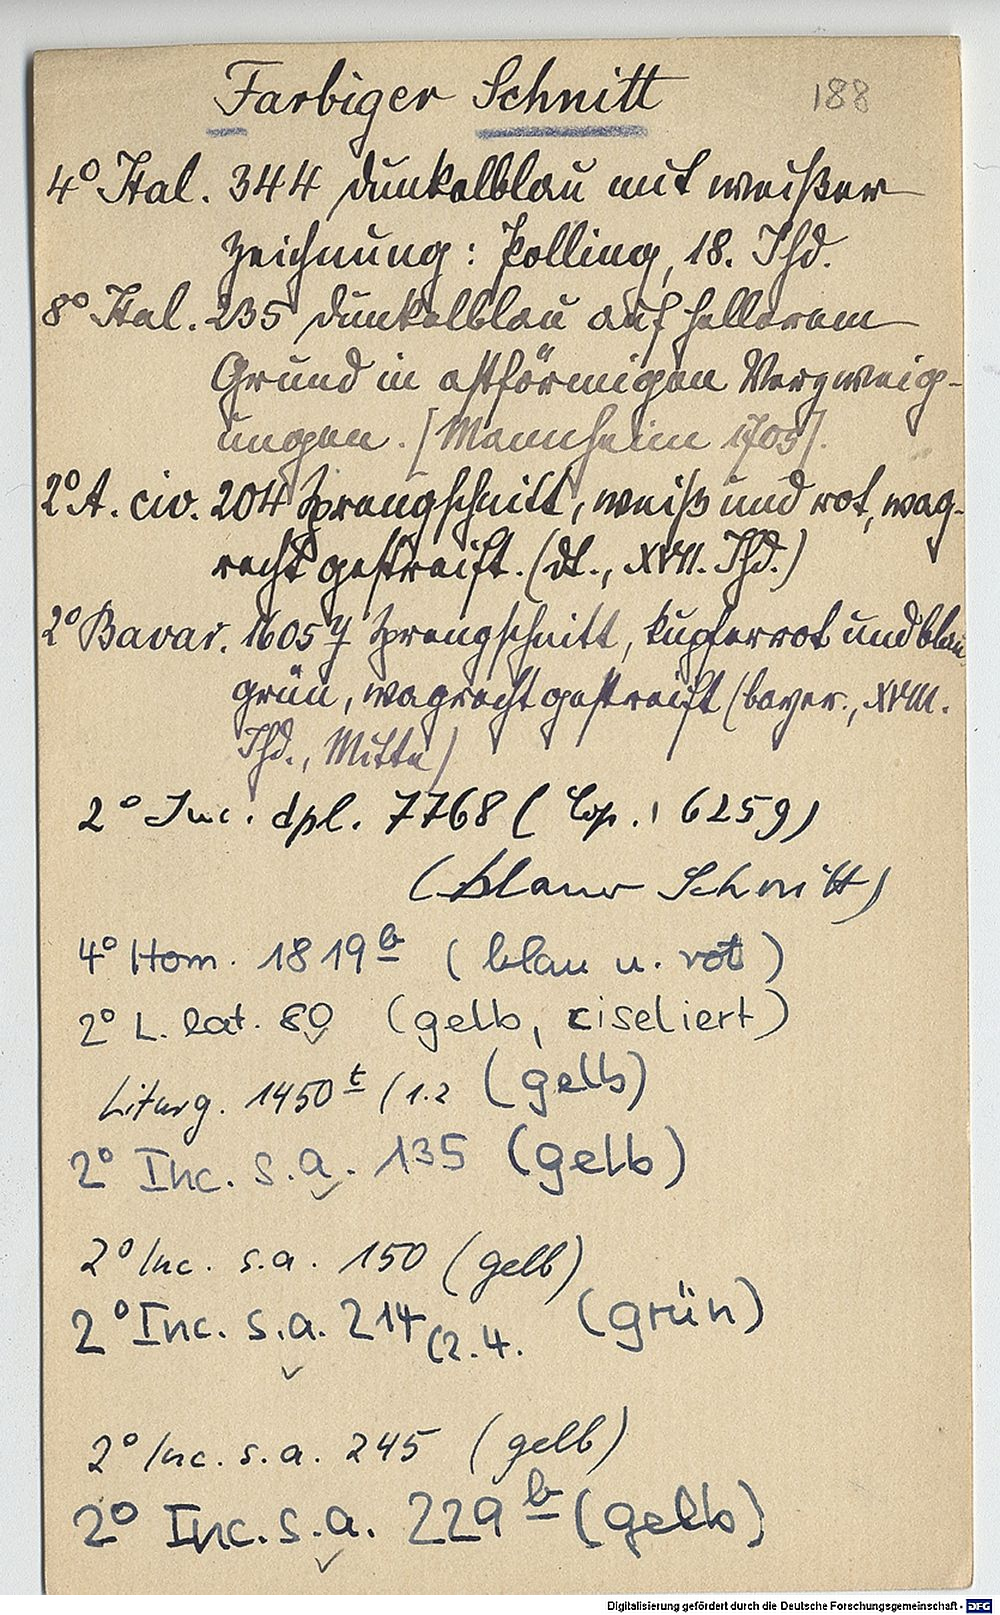 Farbiger Schnitt 188
4° Ital. 344 dunkelblau mit weißer
Zeichnung: Polling, 18. Jhd.
8° Ital. 235 dunkelblau auf hellerem
Grund in astförmigen Verzweig-
ungen. [Mannheim 1705].
2° A. civ. 204 Sprengschnitt, weiß und rot, wag-
recht gestreift. (dt., XVII. Jhd.)
2° Bavar. 1605 Sprengschnitt, kupferrot und blau
grün, wagrecht gestreift (bayer., XVIII.
Jhd., Mitte)
2° Inc. dpl. 7768 (Cop. 6259)
(blauer Schnitt)
4° Hom. 1819 b (blau u. rot)
2° L. lat. 80 (gelb, ciseliert)
Liturg. 1450 t /1.2 (gelb)
2° Inc. s.a. 135 (gelb)
2° Inc. s.a. 150 (gelb)
2° Inc. s.a. 214 (2.4. (grün)
2° Inc. s.a. 245 (gelb)
2° Inc. s.a. 229 b (gelb)
Digitalisierung gefördert durch die Deutsche Forschungsgemeinschaft - DFG